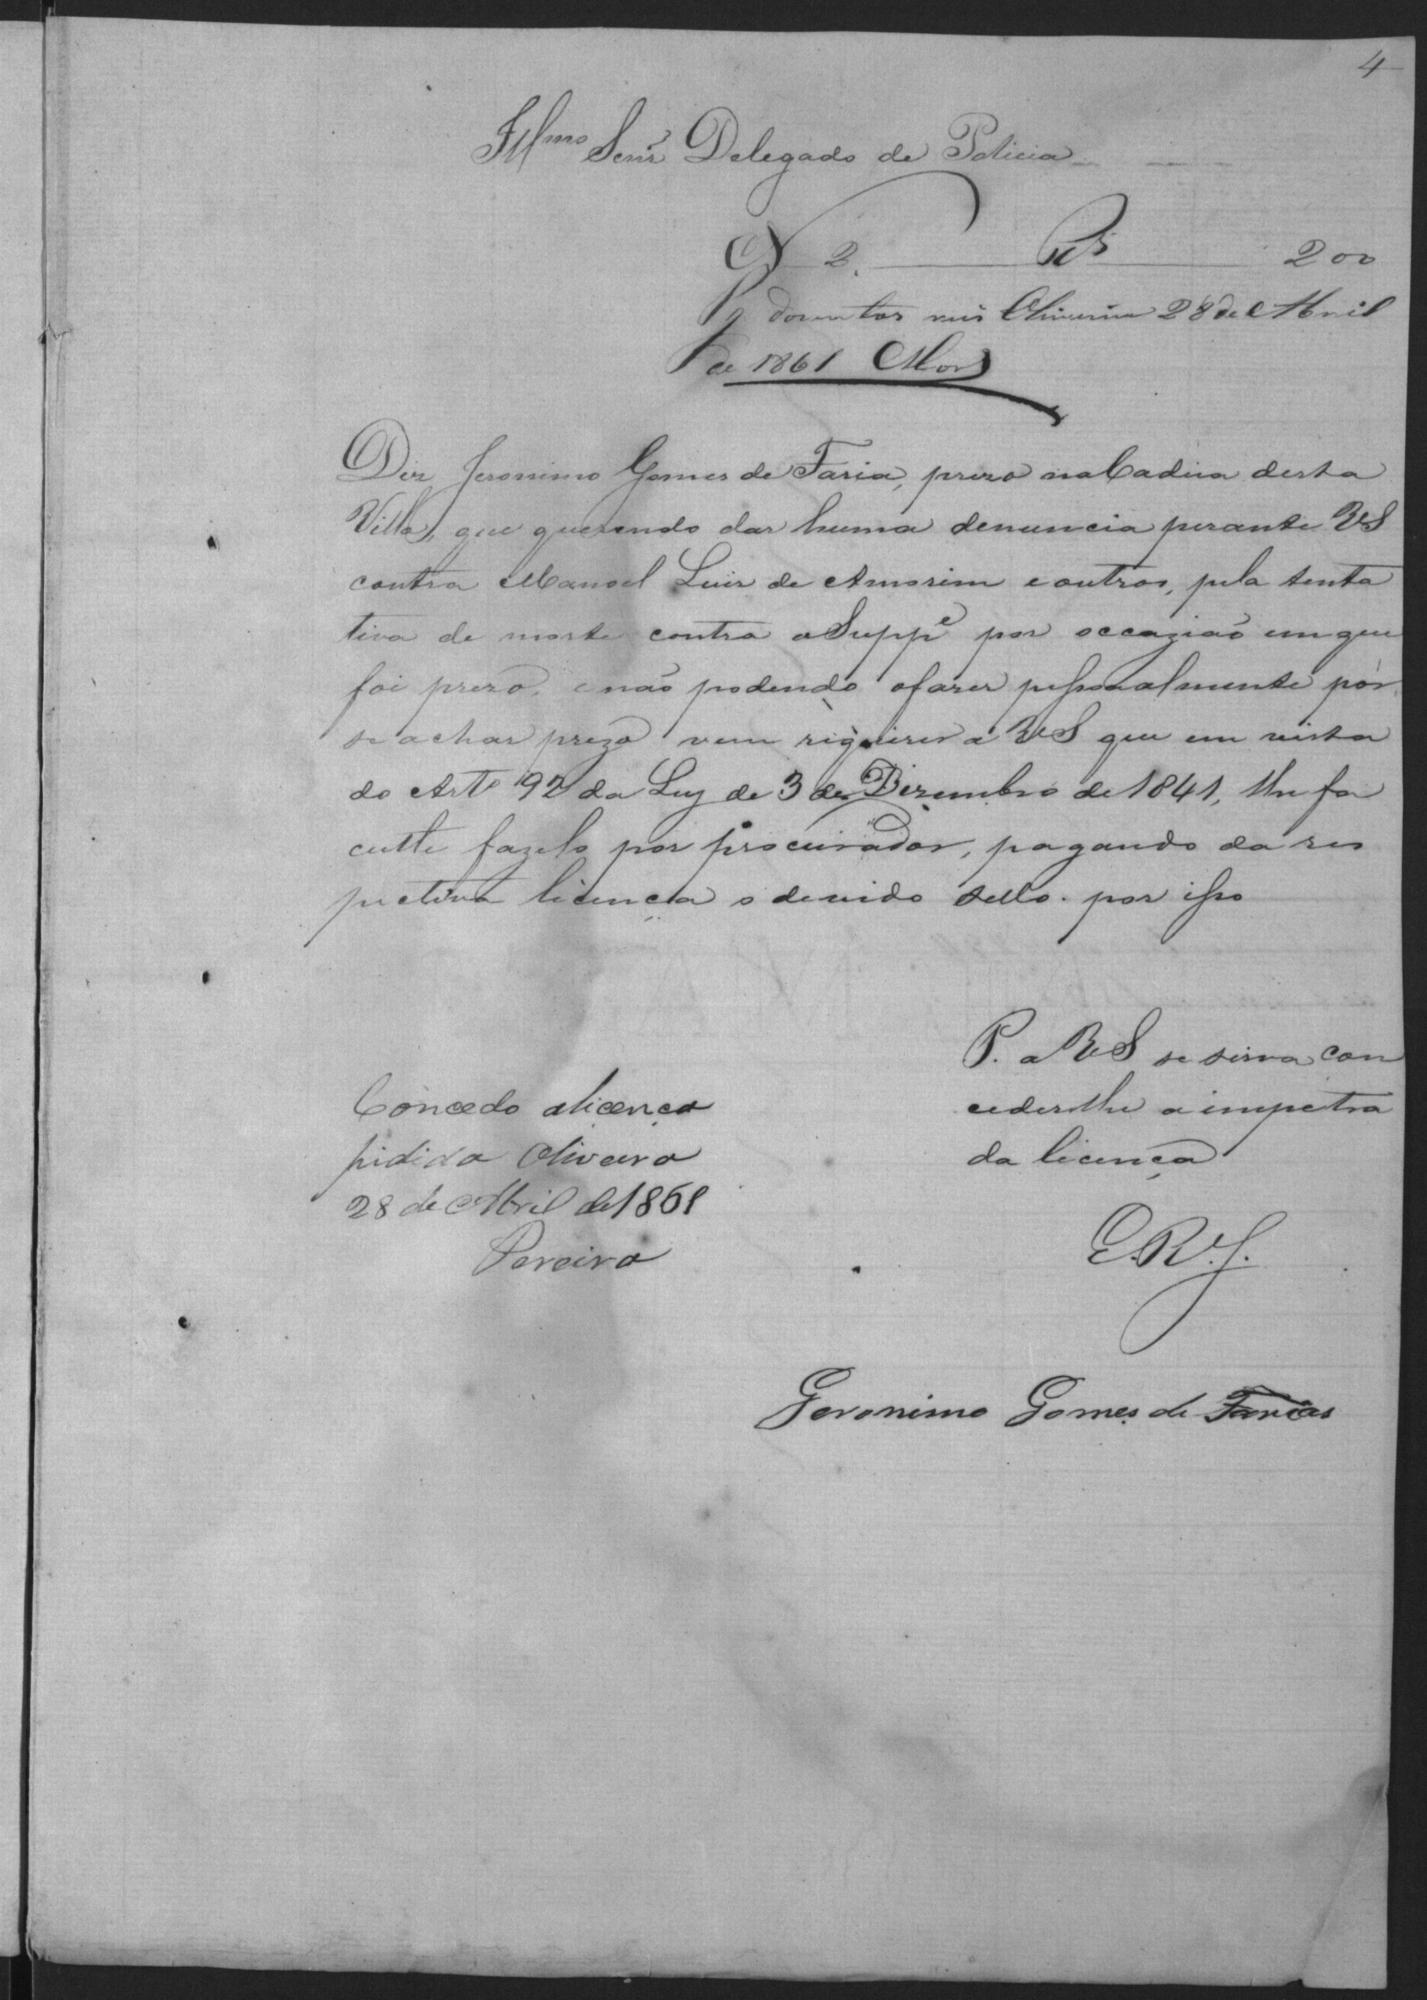 4
Illmo Senr Delegado de Policia
N 2. Rs 200
Pg duzentos reis Oliveira 28 de Abril
de 1861
Diz Jeronimo Gomes de Faria, prezo na Cadêia desta
Villa, que querendo dar huma denuncia perante VS
contra Manoel Luiz de Amorim e outros, pela tenta
tiva de morte contra o Suppe por occazião em que
foi prezo, e não podendo o fazer pessoalmente por
se achar prezo vem riquerer a VS que em vista
do Arto 92 da Ley de 3 de Dezembro de 1841, lhe fa
culte fazelo por procurador, pagando da res
pectiva licença o devido sello. por isso
P. a VS se sirva con
cederlhe a impetra
da licença
E.R.J.
Concedo alicença
pidida Oliveira
28 de Abril de 1861
Pereira
Geronimo Gomes de Farias